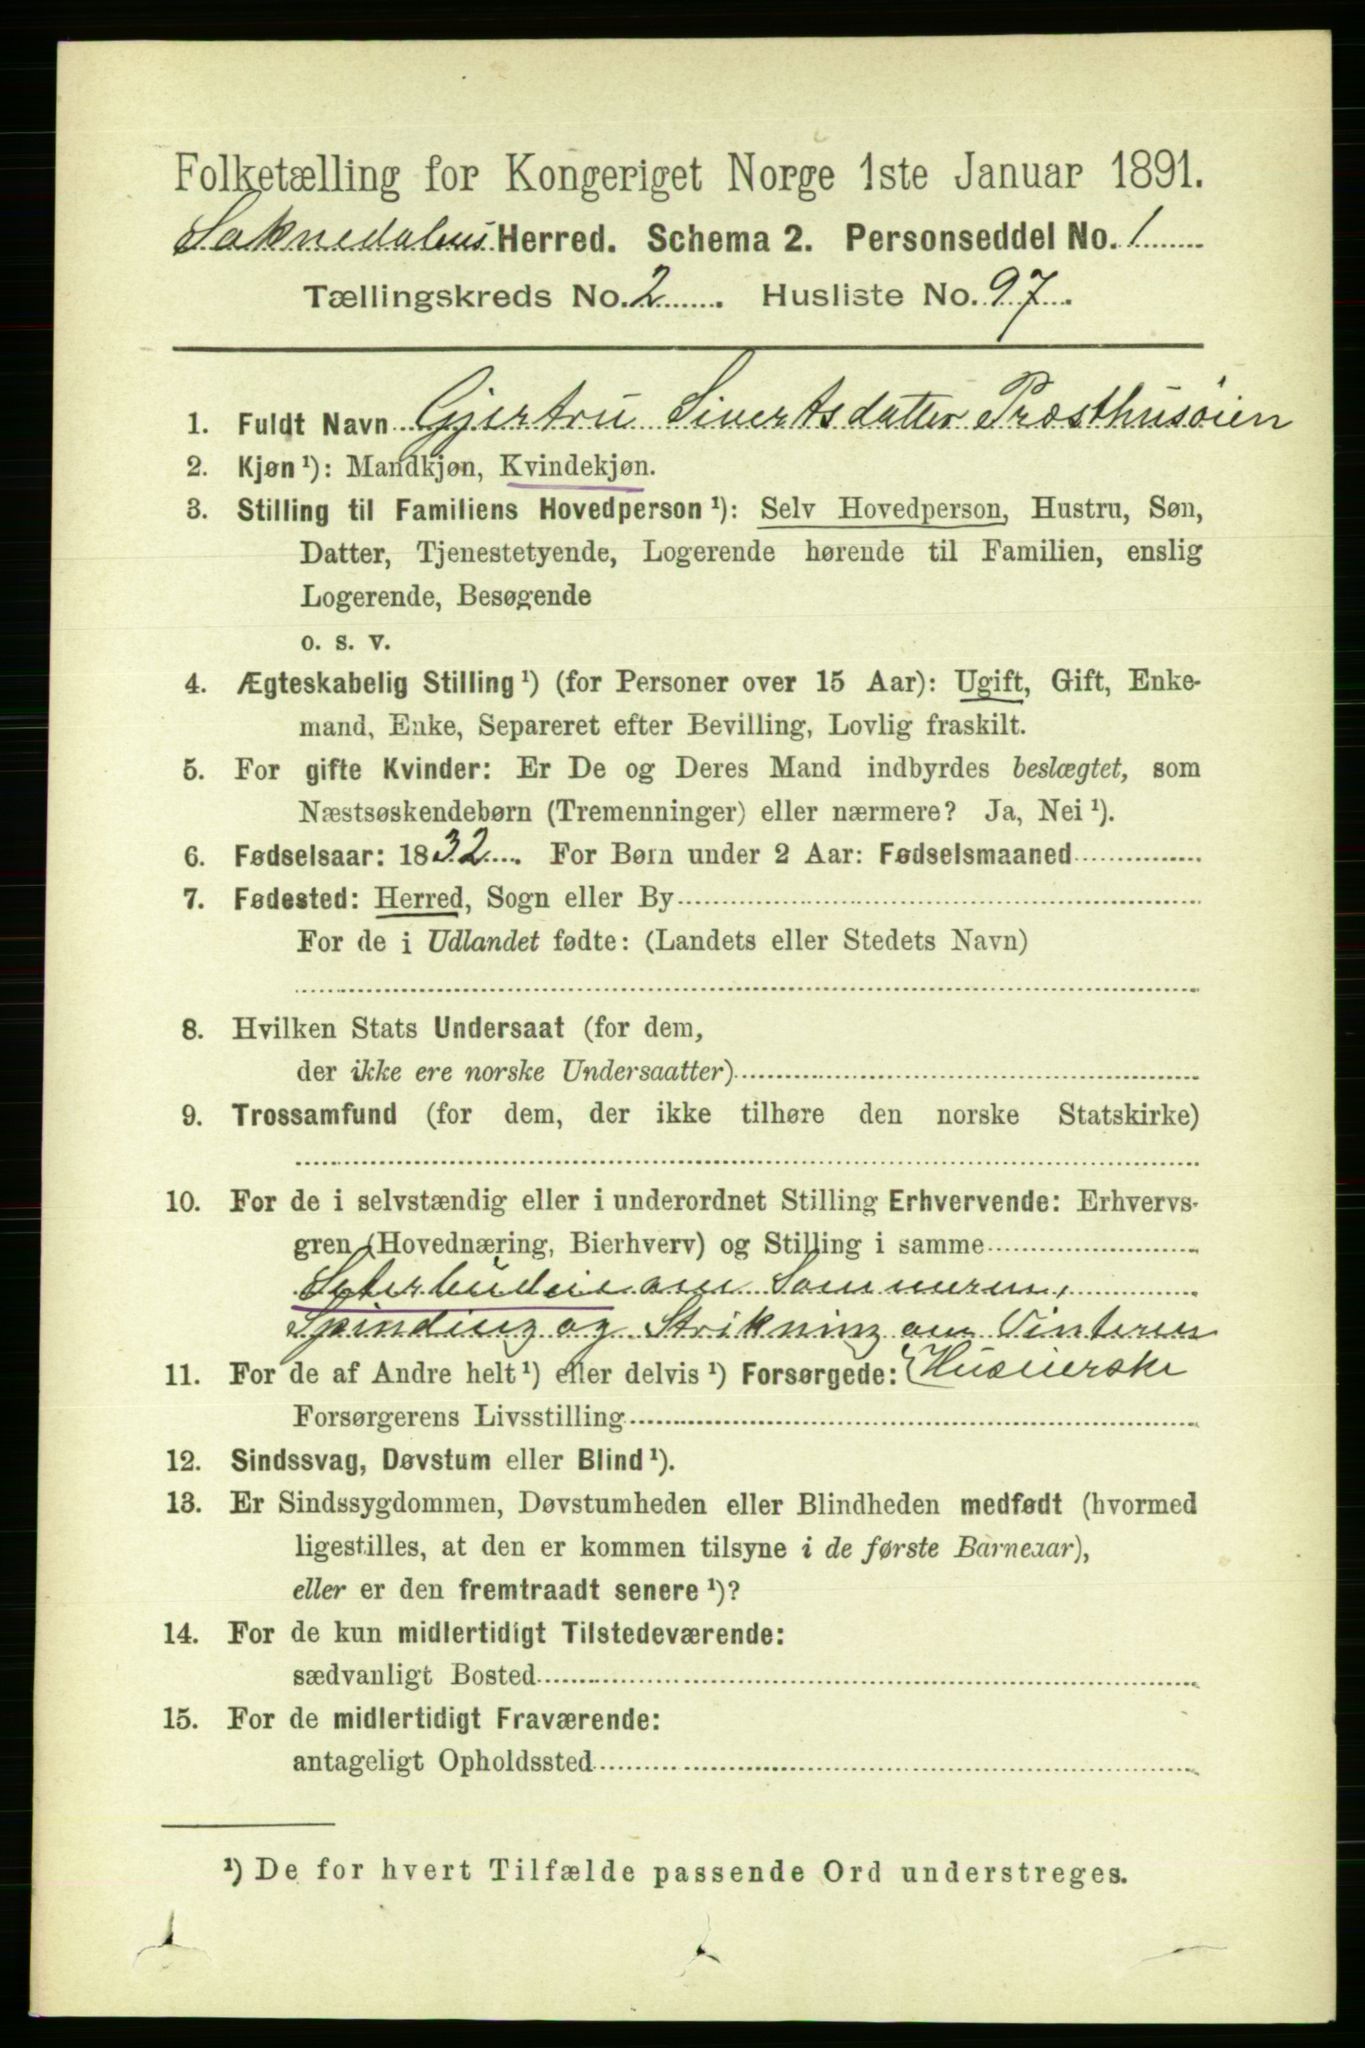 Folketælling for Kongeriget Norge 1ste Januar 1891.
Soknedalens Herred. Schema 2. Personseddel No. 1
Tællingskreds No. 2. Husliste No. 97.
1. Fuldt Navn Gjertru Sivertsdatter Præsthusøien
2. Kjøn ¹): Mandkjøn, Kvindekjøn.
3. Stilling til Familiens Hovedperson ¹): Selv Hovedperson, Hustru, Søn,
Datter, Tjenestetyende, Logerende hørende til Familien, enslig
Logerende, Besøgende
o. s. v.
4. Ægteskabelig Stilling ¹) (for Personer over 15 Aar): Ugift, Gift, Enke-
mand, Enke, Separeret efter Bevilling, Lovlig fraskilt.
5. For gifte Kvinder: Er De og Deres Mand indbyrdes beslægtet, som
Næstsøskendebørn (Tremenninger) eller nærmere? Ja, Nei ¹).
6. Fødselsaar: 1832. For Børn under 2 Aar: Fødselsmaaned
7. Fødested: Herred, Sogn eller By
For de i Udlandet fødte: (Landets eller Stedets Navn)
8. Hvilken Stats Undersaat (for dem,
der ikke ere norske Undersaatter)
9. Trossamfund (for dem, der ikke tilhøre den norske Statskirke)
10. For de i selvstændig eller i underordnet Stilling Erhvervende: Erhvervs-
gren (Hovednæring, Bierhverv) og Stilling i samme
Seterbudeie om Sommeren,
Spinding og Strikning om Vinteren
11. For de af Andre helt ¹) eller delvis ¹) Forsørgede: Husierske
Forsørgerens Livsstilling
12. Sindssvag, Døvstum eller Blind ¹).
13. Er Sindssygdommen, Døvstumheden eller Blindheden medfødt (hvormed
ligestilles, at den er kommen tilsyne i de første Barneaar),
eller er den fremtraadt senere ¹)?
14. For de kun midlertidigt Tilstedeværende:
sædvanligt Bosted
15. For de midlertidigt Fraværende:
antageligt Opholdssted
¹) De for hvert Tilfælde passende Ord understreges.